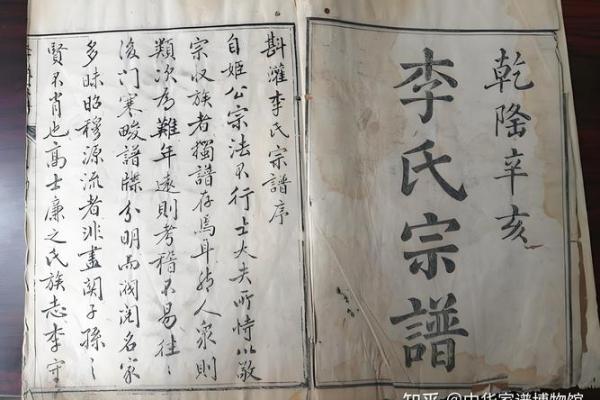 乾隆辛亥
李氏宗譜
斟灌李氏宗譜序
自姬公宗法不行士大夫所恃以敬
宗收族者獨譜存焉耳然人衆則
類次為難年遠則考稽不易往〻
後門寒畯譜牒分明而閥閱名家
多昧昭穆源流者非盡関子孫之
賢不肖也高士廉之氏族志李守
知乎 @中华家谱博物馆